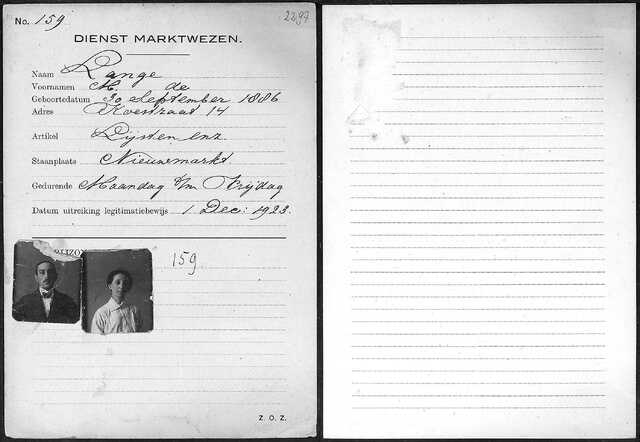 No. 159
2297
DIENST MARKTWEZEN.
Naam Lange
Voornamen M. de
Geboortedatum 30 September 1886
Adres Koestraat 14
Artikel Lijsten enz.
Staanplaats Nieuwmarkt
Gedurende Maandag t/m Vrijdag
Datum uitreiking legitimatiebewijs 1 Dec: 1923.
159
Z. O. Z.